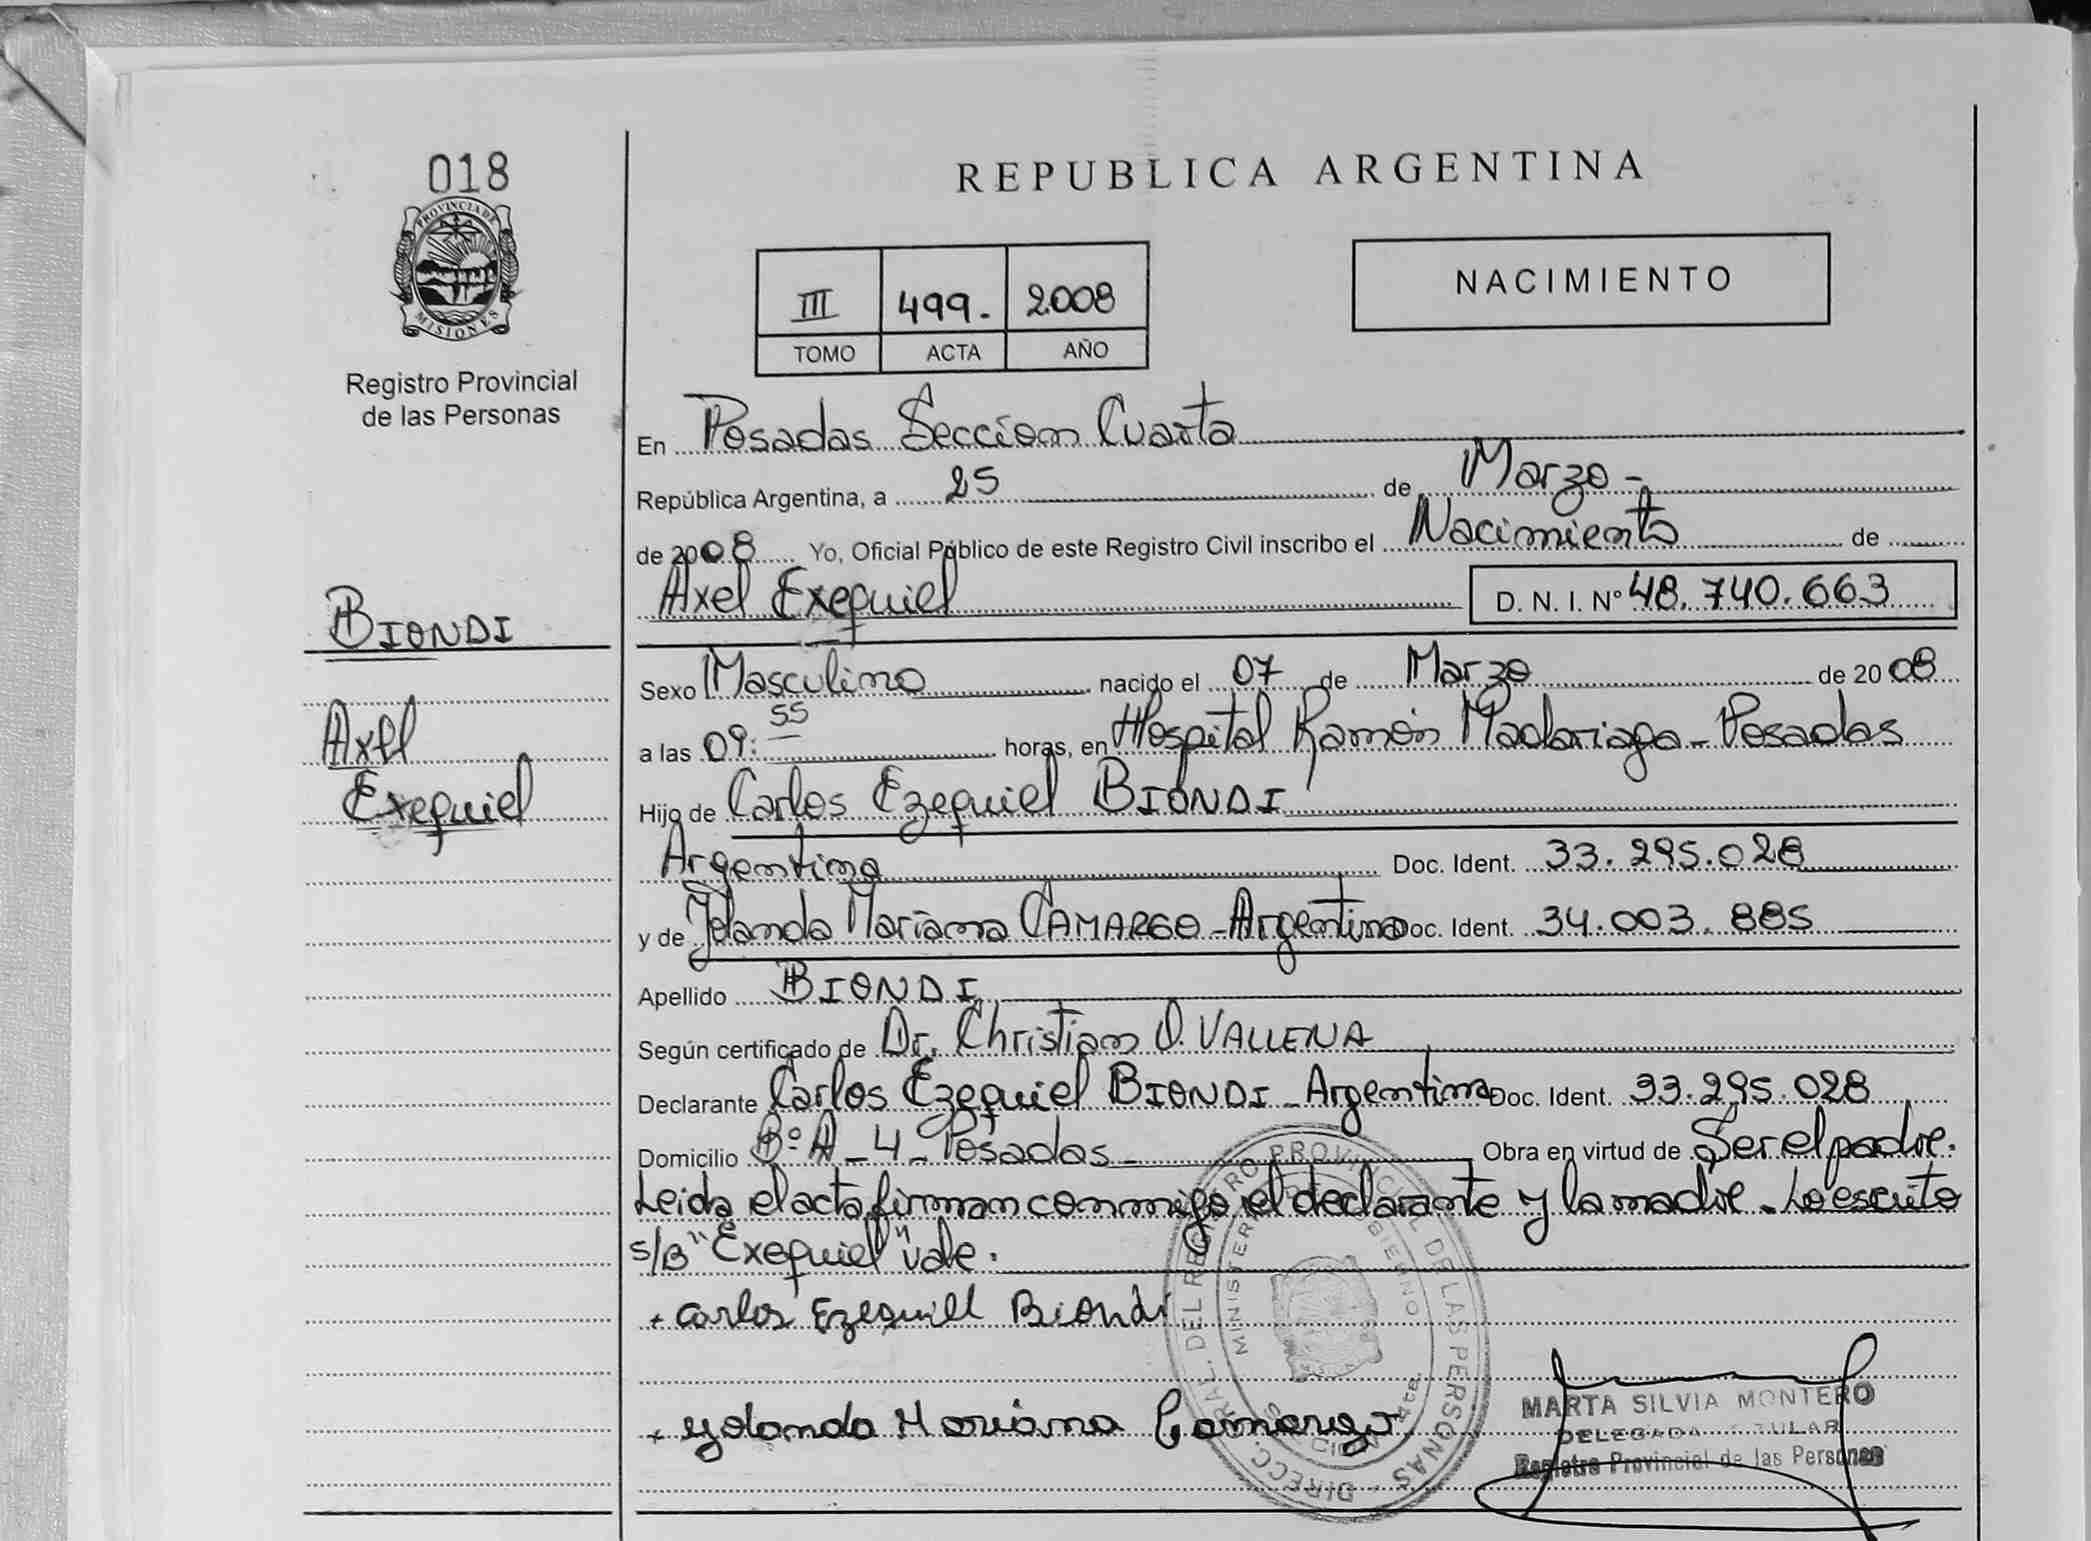 018
PROVINCIA DE
MISIONES
Registro Provincial
de las Personas
BIONDI
Axel
Exequiel
REPUBLICA ARGENTINA
III 499. 2008
TOMO ACTA AÑO
NACIMIENTO
En Posadas Sección Cuarta
República Argentina, a 25 de Marzo -
de 2008 Yo, Oficial Público de este Registro Civil inscribo el Nacimiento de
Axel Exequiel D. N. I. Nº 48.740.663
Sexo Masculino nacido el 07 de Marzo de 2008
a las 09:55 horas, en Hospital Ramón Madariaga - Posadas
Hijo de Carlos Ezequiel BIONDI
Argentina Doc. Ident. 33.295.028
y de Yolanda Mariana CAMARGO - Argentina Doc. Ident. 34.003.885
Apellido BIONDI
Según certificado de Dr. Christian O. VALLENA
Declarante Carlos Ezequiel BIONDI - Argentina Doc. Ident. 33.295.028
Domicilio Bº A - 4 - Posadas - Obra en virtud de Ser el padre.
Leida el acta firman conmigo el declarante y la madre - Lo escrito
s/B "Exequiel" vale.
Carlos Ezequiel Biondi
Yolanda Mariana Camargo
DIRECC. GRAL. DEL REGISTRO PROVINCIAL DE LAS PERSONAS
MARTA SILVIA MONTERO
DELEGADA TITULAR
Registro Provincial de las Personas